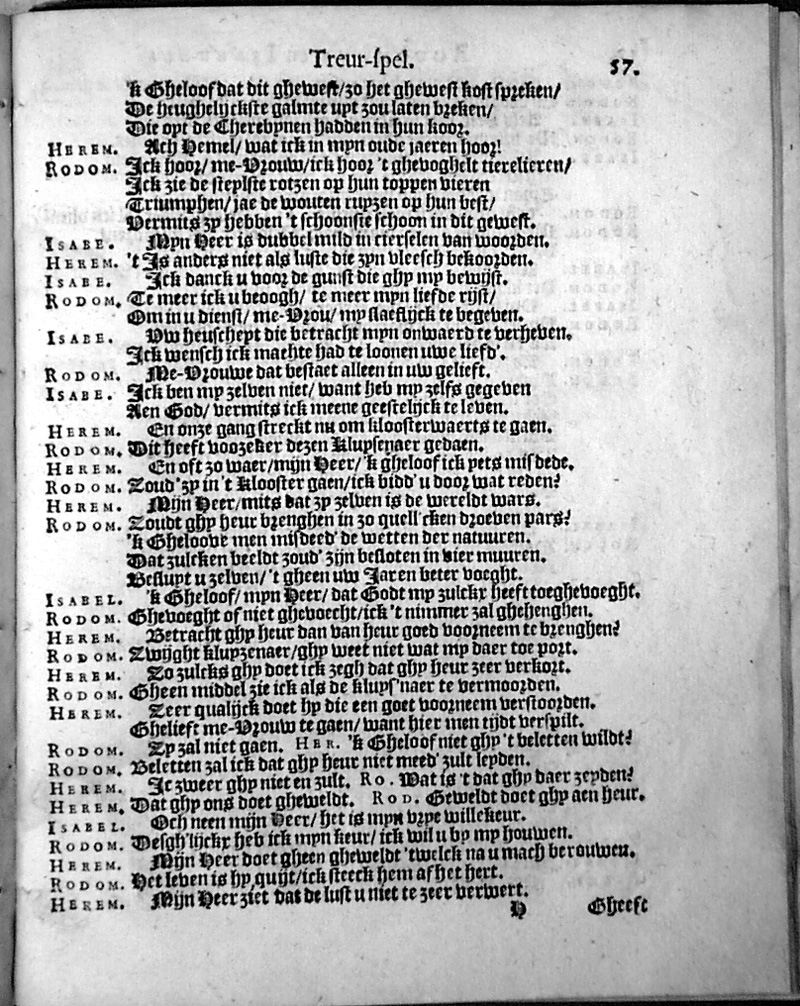 Treur-ſpel. 57.
'k Gheloof dat dit gheweſt/zo het gheweſt koſt ſpreken/
De heughelijckſte galmte uyt zou laten breken/
Die oyt de Cherebynen hadden in hun koor.
HEREM. Ach Hemel/ wat ick in myn oude jaeren hoor!
RODOM. Ick hoor/ me-Vrouw/ick hoor 't ghevoghelt tierelieren/
Ick zie de ſteylſte rotzen op hun toppen vieren
Triumphen/ jae de wouten ruyzen op hun beſt/
Vermits zy hebben 't ſchoonſte ſchoon in dit geweſt.
ISABE. Myn Heer is dubbel mild in cierſelen van woorden.
HEREM. 't Is anders niet als luſte die zyn vleeſch bekoorden.
ISABE. Ick danck u voor de gunſt die ghy my bewijſt.
RODOM. Te meer ick u beoogh/ te meer myn liefde rijſt/
Om in u dienſt/ me-Vrou/ my ſlaeflijck te begeven.
ISABE. Uw heuſcheyt die betracht myn onwaerd te verheven.
Ick wenſch ick machte had te loonen uwe liefd'.
RODOM. Me-Vrouwe dat beſtaet alleen in uw gelieft.
ISABE. Ick ben my zelven niet/ want heb my zelfs gegeven
Aen God/ vermits ick meene geeſtelijck te leven.
HEREM. En onze gang ſtreckt nu om klooſterwaerts te gaen.
RODOM. Dit heeft voozeker dezen Kluyſenaer gedaen.
HEREM. En oft zo waer/mijn Heer/ 'k gheloof ick yets miſdede.
RODOM. Zoud' zy in 't Klooſter gaen/ick bidd' u door wat reden?
HEREM. Mijn Heer/mits dat zy zelven is de wereldt wars.
RODOM. Zoudt ghy heur brenghen in zo quell'cken droeven pars?
'k Gheloove men miſdeed' de wetten der natuuren.
Dat zulcken beeldt zoud' zijn beſloten in vier muuren.
Beſluyt u zelven/ 't gheen uw Jaren beter voeght.
ISABEL. 'k Gheloof/ myn Heer/ dat Godt my zulckx heeft toeghevoeght.
RODOM. Ghevoeght of niet ghevoecht/ick 't nimmer zal ghehenghen.
HEREM. Betracht ghy heur dan van heur goed voorneem te brenghen?
RODOM. Zwijght kluyzenaer/ghy weet niet wat my daer toe port.
HEREM. Zo zulcks ghy doet ick zegh dat ghy heur zeer verkort.
RODOM. Gheen middel zie ick als de kluyſ'naer te vermoorden.
HEREM. Zeer qualijck doet hy die een goet voorneem verſtoorden.
Ghelieft me-Vrouw te gaen/ want hier men tijdt verſpilt.
RODOM. Zy zal niet gaen. HER. 'k Gheloof niet ghy 't beletten wildt?
RODOM. Beletten zal ick dat ghy heur niet meed' zult leyden.
HEREM. Ic zweer ghy niet en zult. RO. Wat is 't dat ghy daer zeyden?
HEREM. Dat ghy ons doet gheweldt. ROD. Geweldt doet ghy aen heur.
ISABEL. Och neen mijn Heer/ het is myn vrye willekeur.
RODOM. Deſgh'lijckx heb ick myn keur/ ick wil u by my houwen.
HEREM. Mijn Heer doet gheen gheweldt 'twelck na u mach berouwen.
RODOM. Het leven is hy quijt/ick ſteeck hem af het hert.
HEREM. Mijn Heer ziet dat de luſt u niet te zeer verwert.
H Gheeft